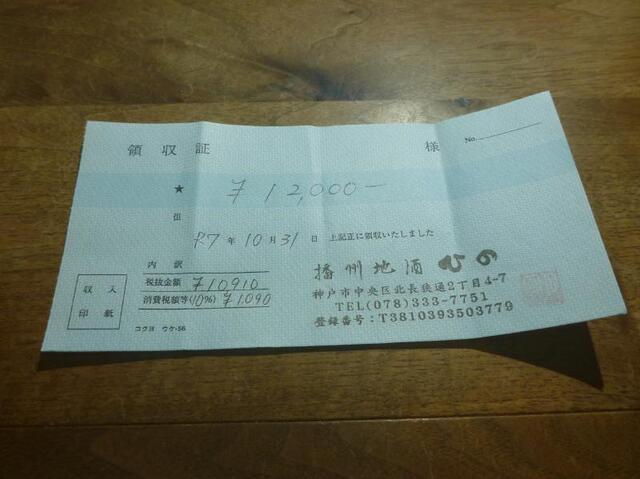 領収証 様 No.
★ ¥12,000－
但
R7年10月31日 上記正に領収いたしました
内訳
税抜金額 ¥10,910
消費税額等(10%) ¥1,090
収入
印紙
コクヨ ウケ-56
播州地酒 ひの
神戸市中央区北長狭通2丁目4-7
TEL(078)333-7751
登録番号:T3810393503779